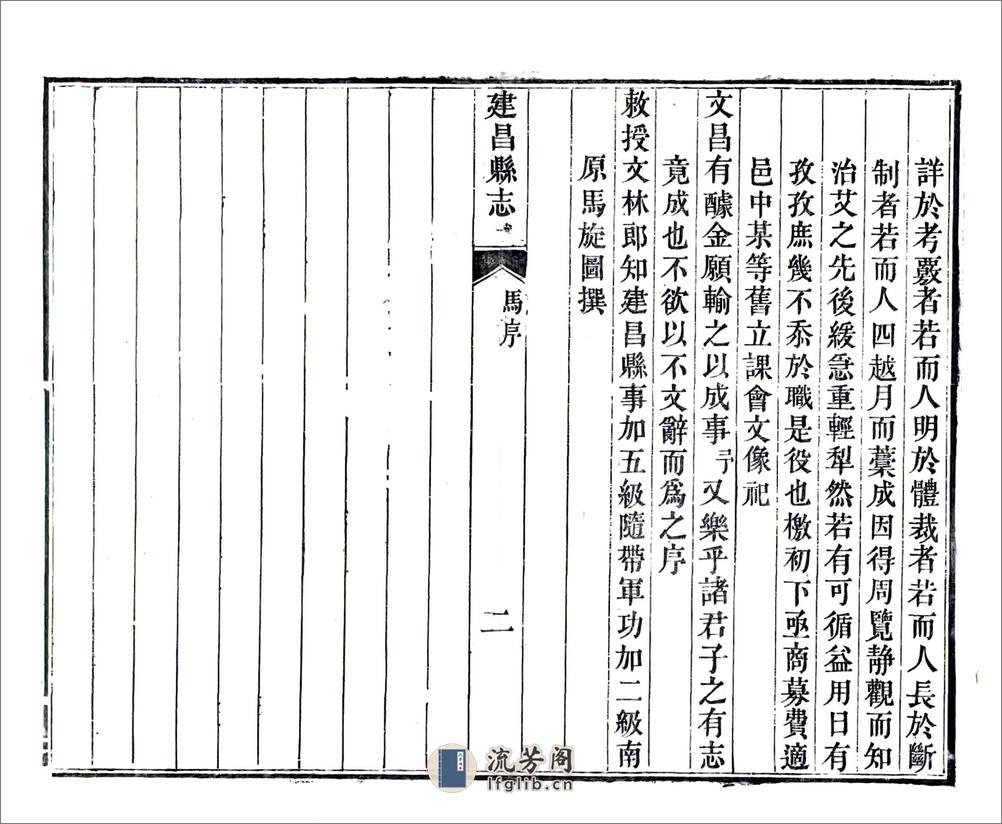 詳於考覈者若而人明於體裁者若而人長於斷
制者若而人四越月而藳成因得周覽静觀而知
治艾之先後緩急重輕犁然若有可循益用日有
孜孜庶幾不忝於職是役也檄初下亟商募費適
邑中某等舊立課會文像祀
文昌有醵金願輸之以成事予又樂乎諸君子之有志
竟成也不欲以不文辭而爲之序
敕授文林郎知建昌縣事加五級隨帶軍功加二級南
原馬旋圖撰
建昌縣志
馬序
二
流芳阁
lfglib.cn